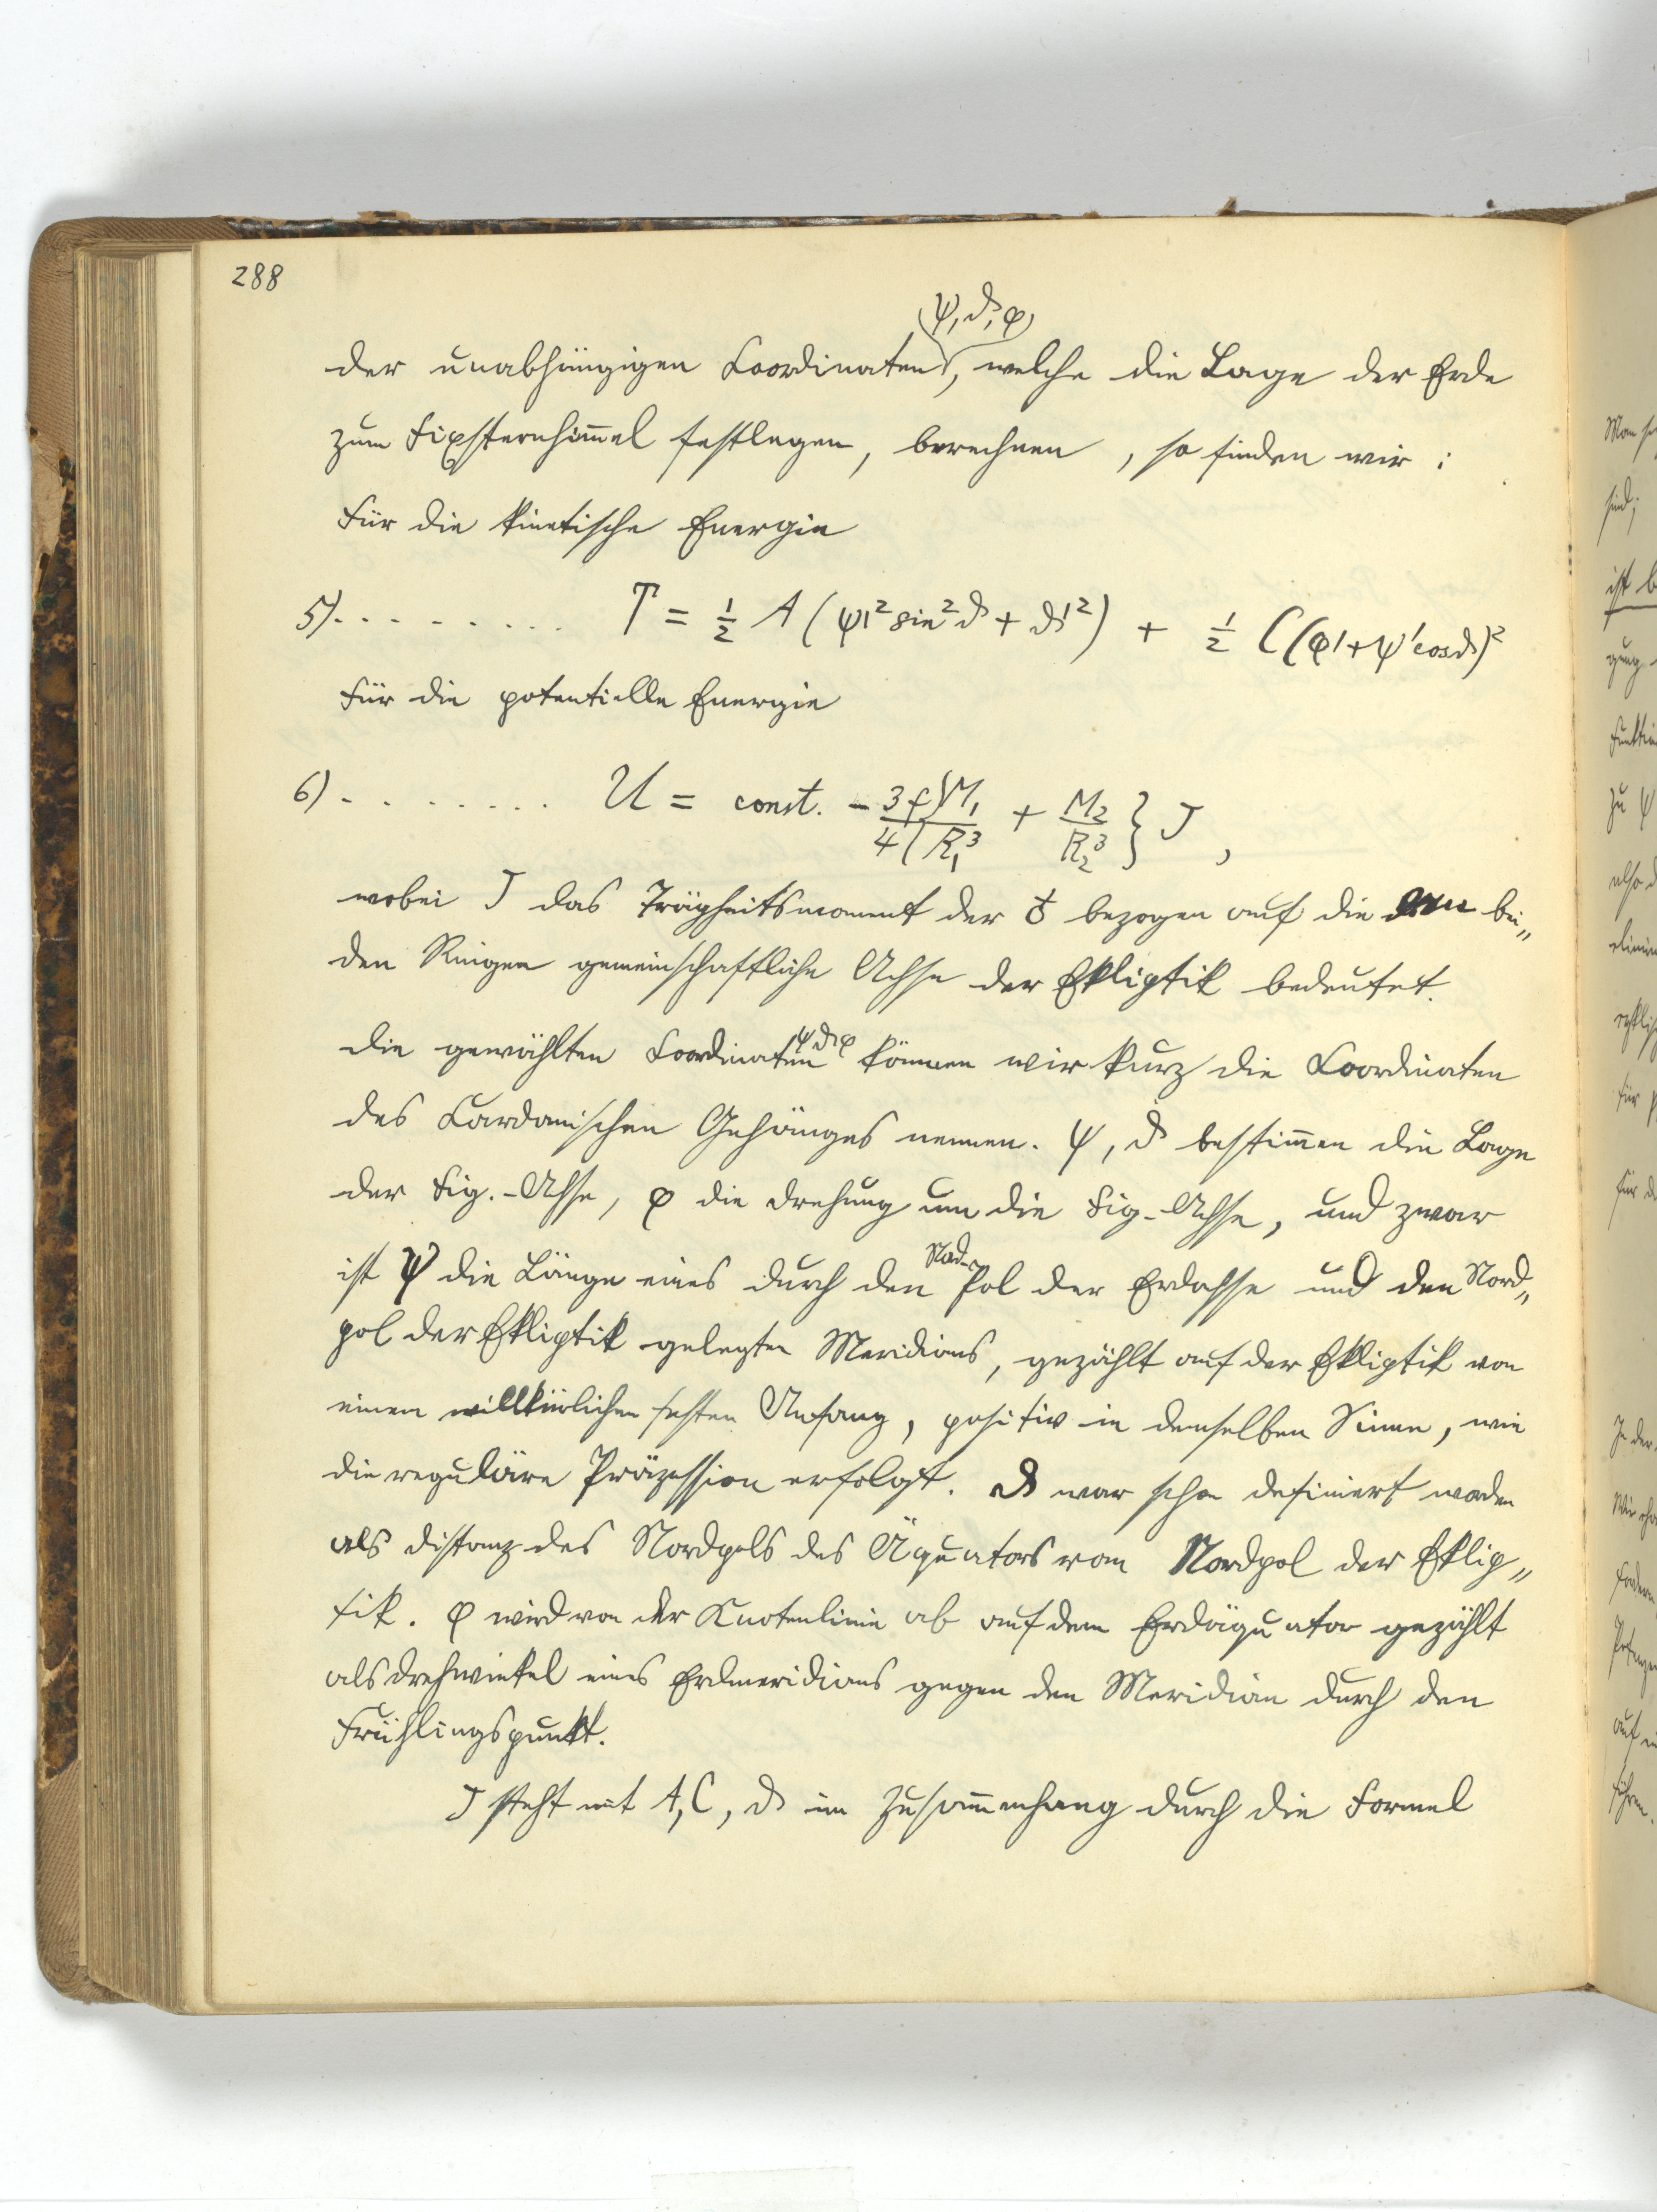 288
(ψ, ϑ, φ)
der unabhängigen Coordinaten, welche die Lage der Erde
zum Fixsternhim̅el festlegen, berechnen, so finden wir:
Für die kinetische Energie
5). . . . . . . . . T = 1/2 A (ψ'² sin² ϑ + ϑ'²) + 1/2 C (φ' + ψ' cos ϑ)²
Für die potentielle Energie
6) . . . . . . . . U = const. - 3f/4 { M₁/R₁³ + M₂/R₂³ } J ,
wobei J das Trägheitsmoment der ♁ bezogen auf die bei„
den Ringen gemeinschaftliche Achse der Ekliptik bedeutet.
Die gewählten Coordinaten ψ ϑ φ können wir kurz die Coordinaten
des Cardanischen Gehänges nennen. ψ, ϑ bestim̅en die Lage
der Fig.-Achse, φ die Drehung um die Fig-Achse, und zwar
ist ψ die Länge eines durch den Nord-Pol der Erdachse und den Nord„
pol der Ekliptik gelegten Meridians, gezählt auf der Ekliptik von
einem willkürlichen festen Anfang, positiv in demselben Sinne, wie
die reguläre Präzession erfolgt. ϑ war schon definiert worden
als Distanz des Nordpols des Äquators vom Nordpol der Eklip„
tik. φ wird von der Knotenlinie ab auf dem Erdäquator gezählt
als Drehwinkel eines Erdmeridians gegen den Meridian durch den
Frühlingspunkt.
J steht mit A, C, ϑ im Zusam̅enhang durch die Formel